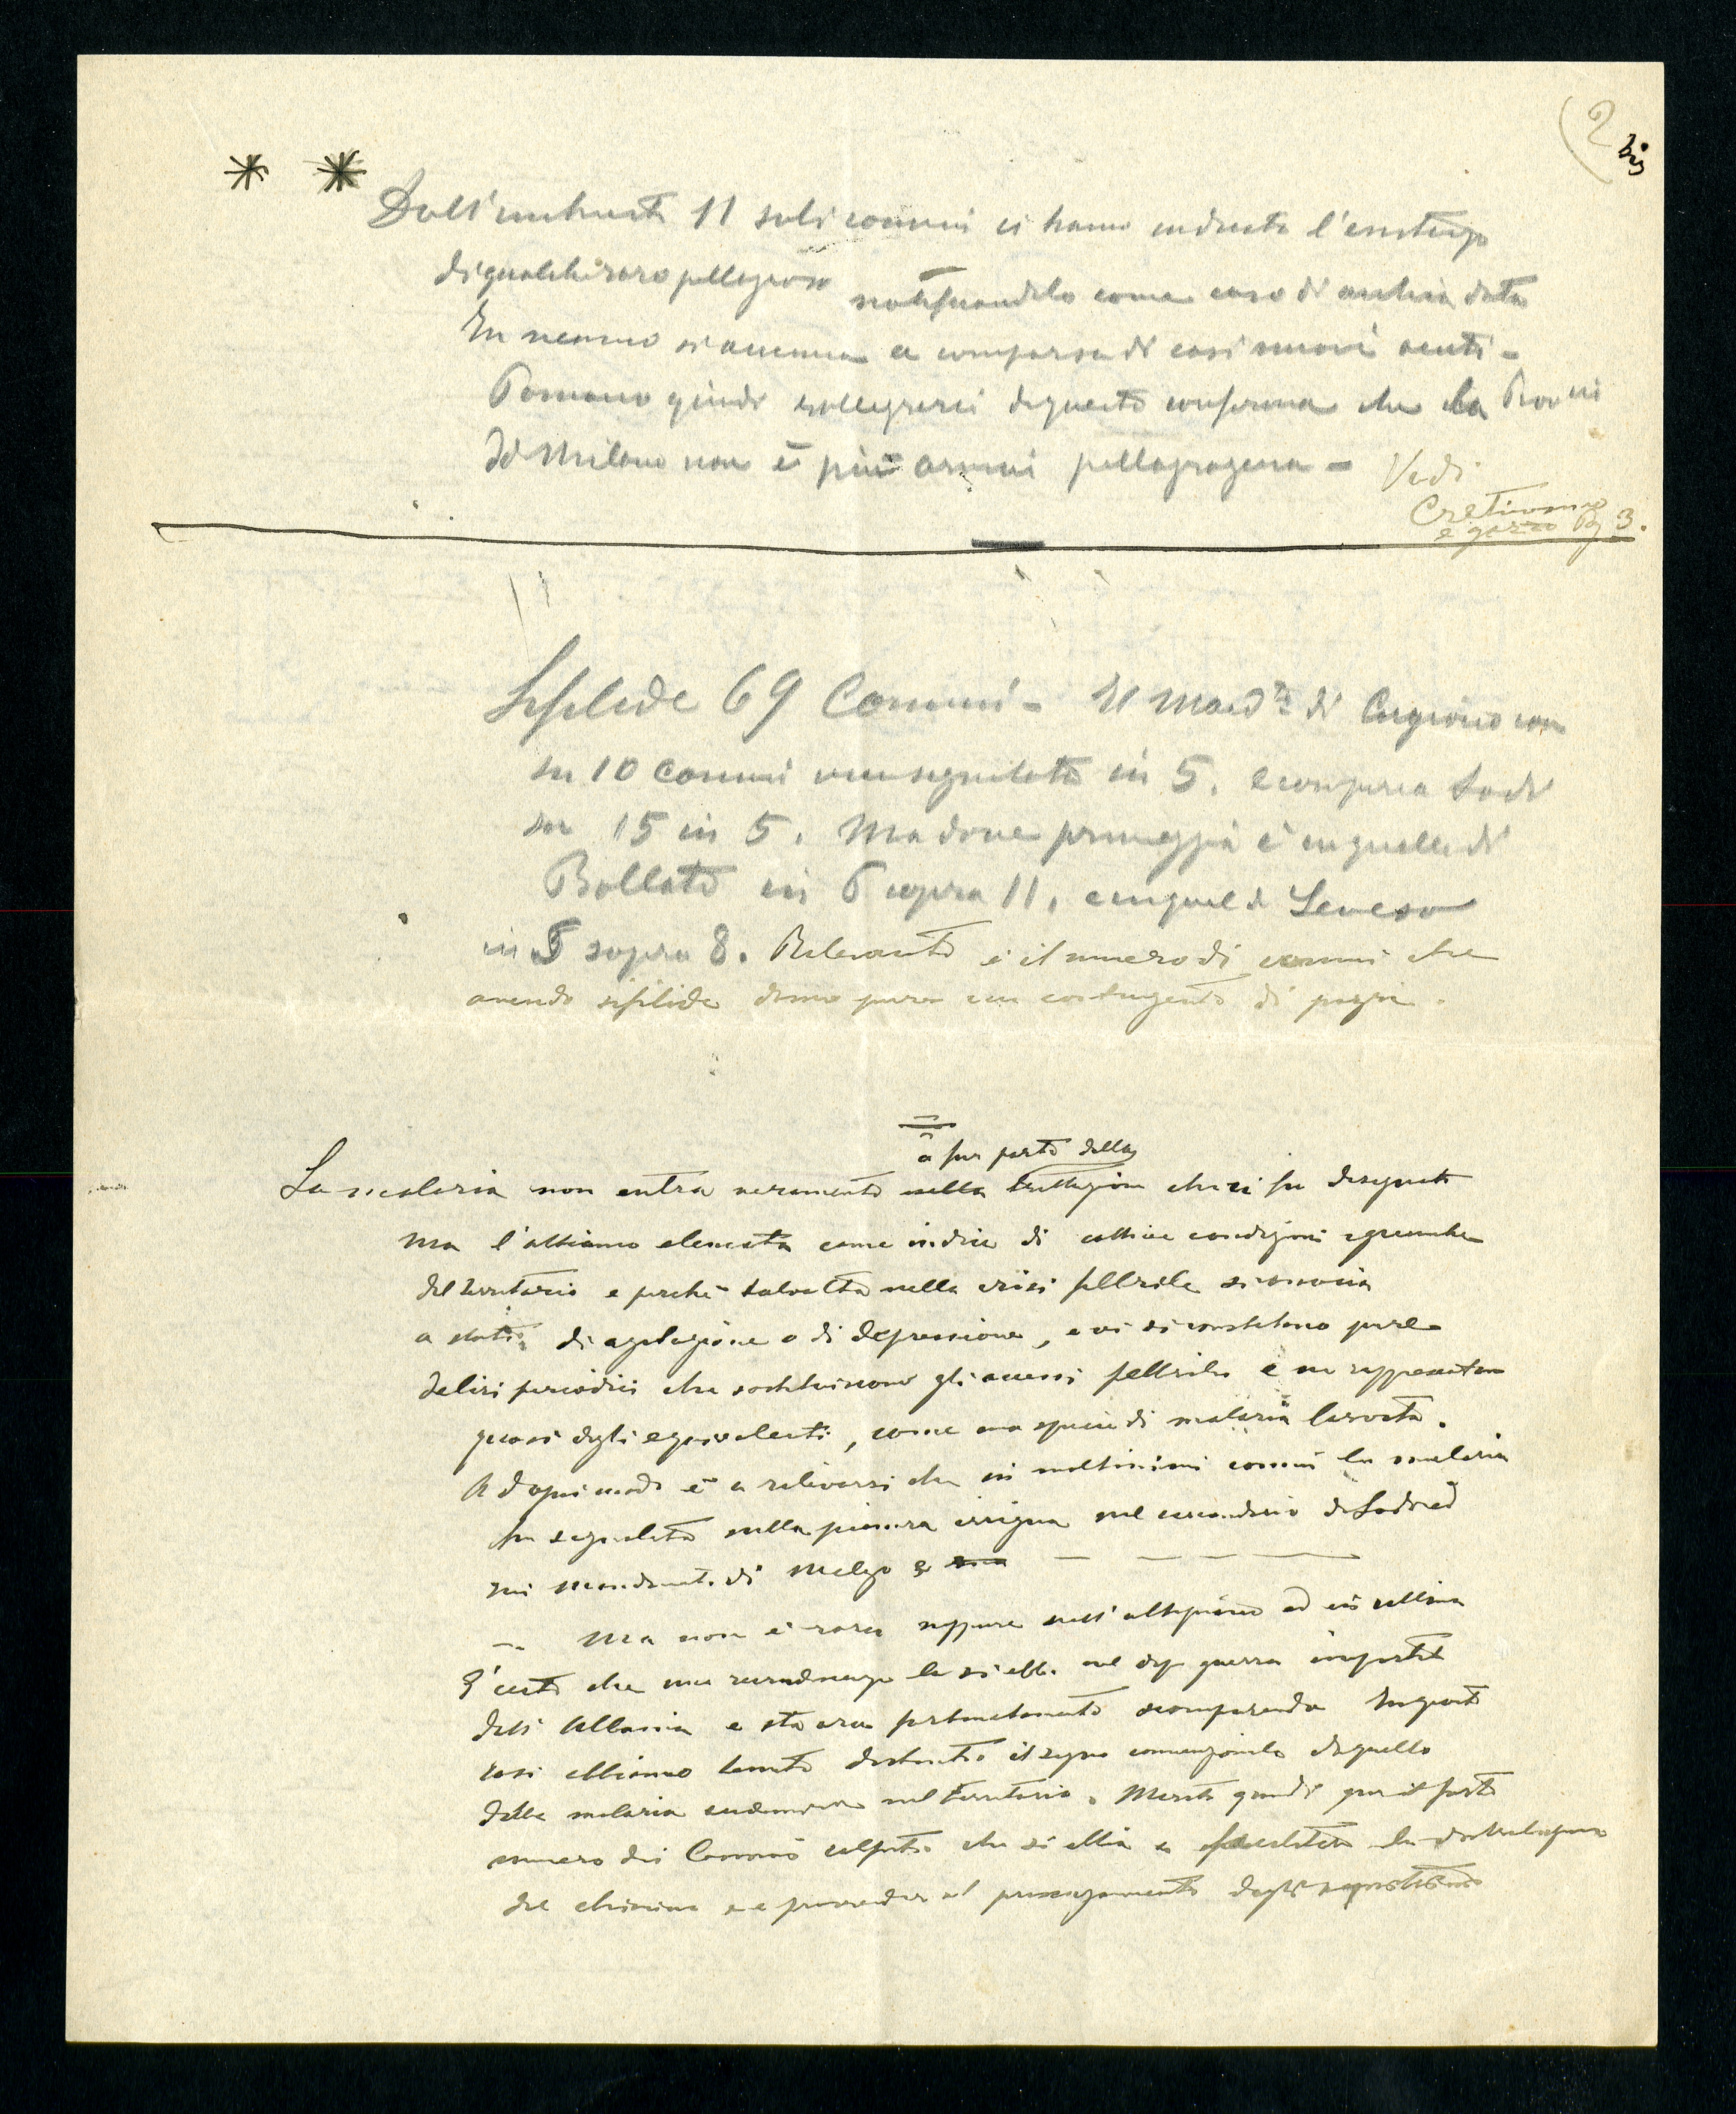 (2 bis
* * Dall'inchiesta 11 soli comuni ci hanno indicato l'esistenza
di qualche raro pellagroso notificandolo come caso di antica data
In nessuno si accenna a comparsa di casi nuovi acuti -
Possiamo quindi rallegrarci di questa conferma che la Provi
di Milano non è più ormai pellagrogena - Vedi
Cretinismo
e gozzo Pg 3.
Sifilide 69 Comuni - Il Mand.to di Cuggiono con
su 10 comuni vien segnalata in 5. e compare a Lodi
su 15 in 5. Ma dove primeggia è in quello di
Bollate in 6 sopra 11, e in quel di Seveso
in 5 sopra 8. Rilevante è il numero di comuni che
avendo sifilide danno pure un contingente di pazzi.
a far parte della
La malaria non entra veramente nella trattazione che ci fu disegnata
ma l'abbiamo elencata come indice di cattive condizioni igieniche
del territorio e perchè talvolta nella crisi febbrile si associa
a stati di agitazione o di depressione, e vi si constatano pure
deliri periodici che sostituiscono gli accessi febbrili e ne rappresentano
quasi degli equivalenti, come una specie di malaria larvata.
Ad ogni modo è a rilevarsi che in moltissimi comuni la malaria
fu segnalata nella pianura irrigua nel circondario di Lodi ed
nei mandamenti di Melzo e
Ma non è rara neppure nell'altipiano ed in collina
E' certo che una recrudescenza la si ebbe nel dopo guerra importata
dall'Albania e sta ora fortunatamente scomparendo In questi
casi abbiamo tenuto distinto il segno convenzionale da quello
della malaria endemica nel territorio. Merita quindi per il forte
numero dei Comuni colpiti che si abbia a facilitare la distribuzione
del chinino e a provvedere al prosciugamento degli